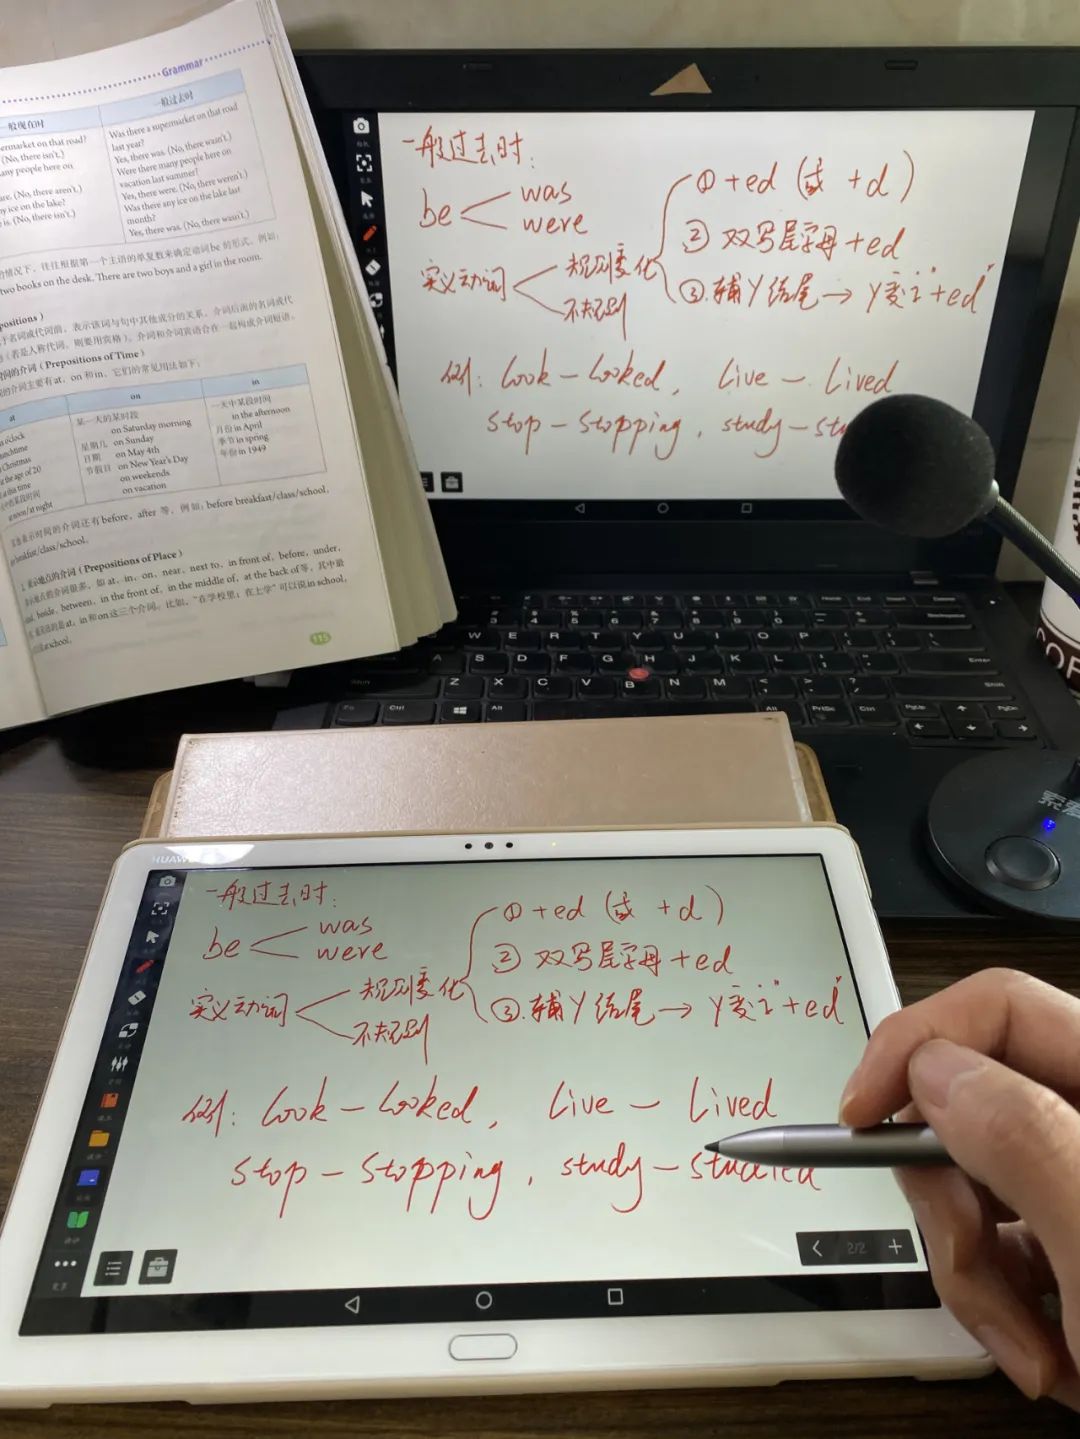 Grammar
一般现在时
一般过去时
ermarket on that road?
Was there a supermarket on that road
(No, there isn't.)
last year?
any people here on
Yes, there was. (No, there wasn't.)
Were there many people here on
vacation last summer?
are. (No, there aren't.)
Yes, there were. (No, there weren't.)
y ice on the lake?
Was there any ice on the lake last
is. (No, there isn't.)
month?
Yes, there was. (No, there wasn't.)
情况下，往往根据第一个主语的单复数来确定动词be 的形式。例如：
two books on the desk. There are two boys and a girl in the room.
positions)
于名词或代词前，表示该词与句中其他成分的关系。介词后面的名词或代
(若是人称代词，则要用宾格)。介词和介词宾语合在一起构成介词短语。
间的介词 (Prepositions of Time)
的介词主要有at, on 和in, 它们的常见用法如下：
at
on
in
o'clock
某一天的某时段
一天中某段时间
on Saturday morning
in the afternoon
Christmas
星期几 on Sunday
月份 in April
the age of 20
日期 on May 4th
季节 in spring
at this time
节假日 on New Year's Day
年份 in 1949
on weekends
noon/at night
on vacation
表示时间的介词还有before, after 等，例如：before breakfast/class/school,
breakfast/class/school。
表示地点的介词 (Prepositions of Place)
示地点的介词很多，如 at, in, on, near, next to, in front of, before, under,
beside, between, in the front of, in the middle of, at the back of等，其中最
at, in 和on 这三个介词。比如，“在学校里；在上学”可以说in school,
at school。
115
一般过去时：
be
was
were
实义动词
规则变化
不规则
① +ed (或 +d)
② 双写尾字母+ed
③.辅y结尾→ y变i+ed
例：look – looked, live – lived
stop – stopping, study – stu
HUAW
一般过去时：
be
was
were
实义动词
规则变化
不规则
① +ed (或 +d)
② 双写尾字母+ed
③.辅y结尾→ y变i+ed
例：look – looked, live – lived
stop – stopping, study – studied
2/2